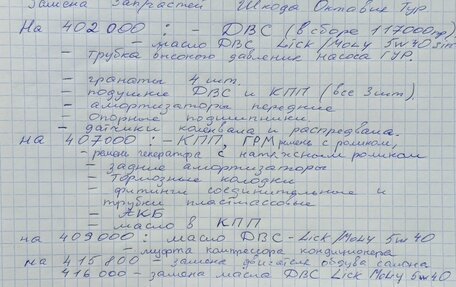 Замена Запрастей Шкода Октавие Тур
На 402 000 : - ДВС (в сборе 117000пр)
- масло ДВС Lick/Moly 5w40
- трубка высокого давление насоса ГУР.
- гранаты 4 шт.
- подушкие ДВС и КПП (все 3шт)
- амортизаторы передние
- Опорные подшипники.
- датчики коленвала и распредвала.
на 407000 :- КПП, ГРМ ремень с роликом,
- ремень генератора с натяжсным роликом
- задние амортизаторы
- тормозные колодки
- фитинги соединительные и
трубки пластмассовые
- АКБ
- масло в КПП
на 409000 : масло ДВС - Lick/Moly 5w40
- муфта компресора кондиционера
на 415 800 - замена двигателе обдува салона
416 000 - замена масла ДВС Lick Moly 5w40